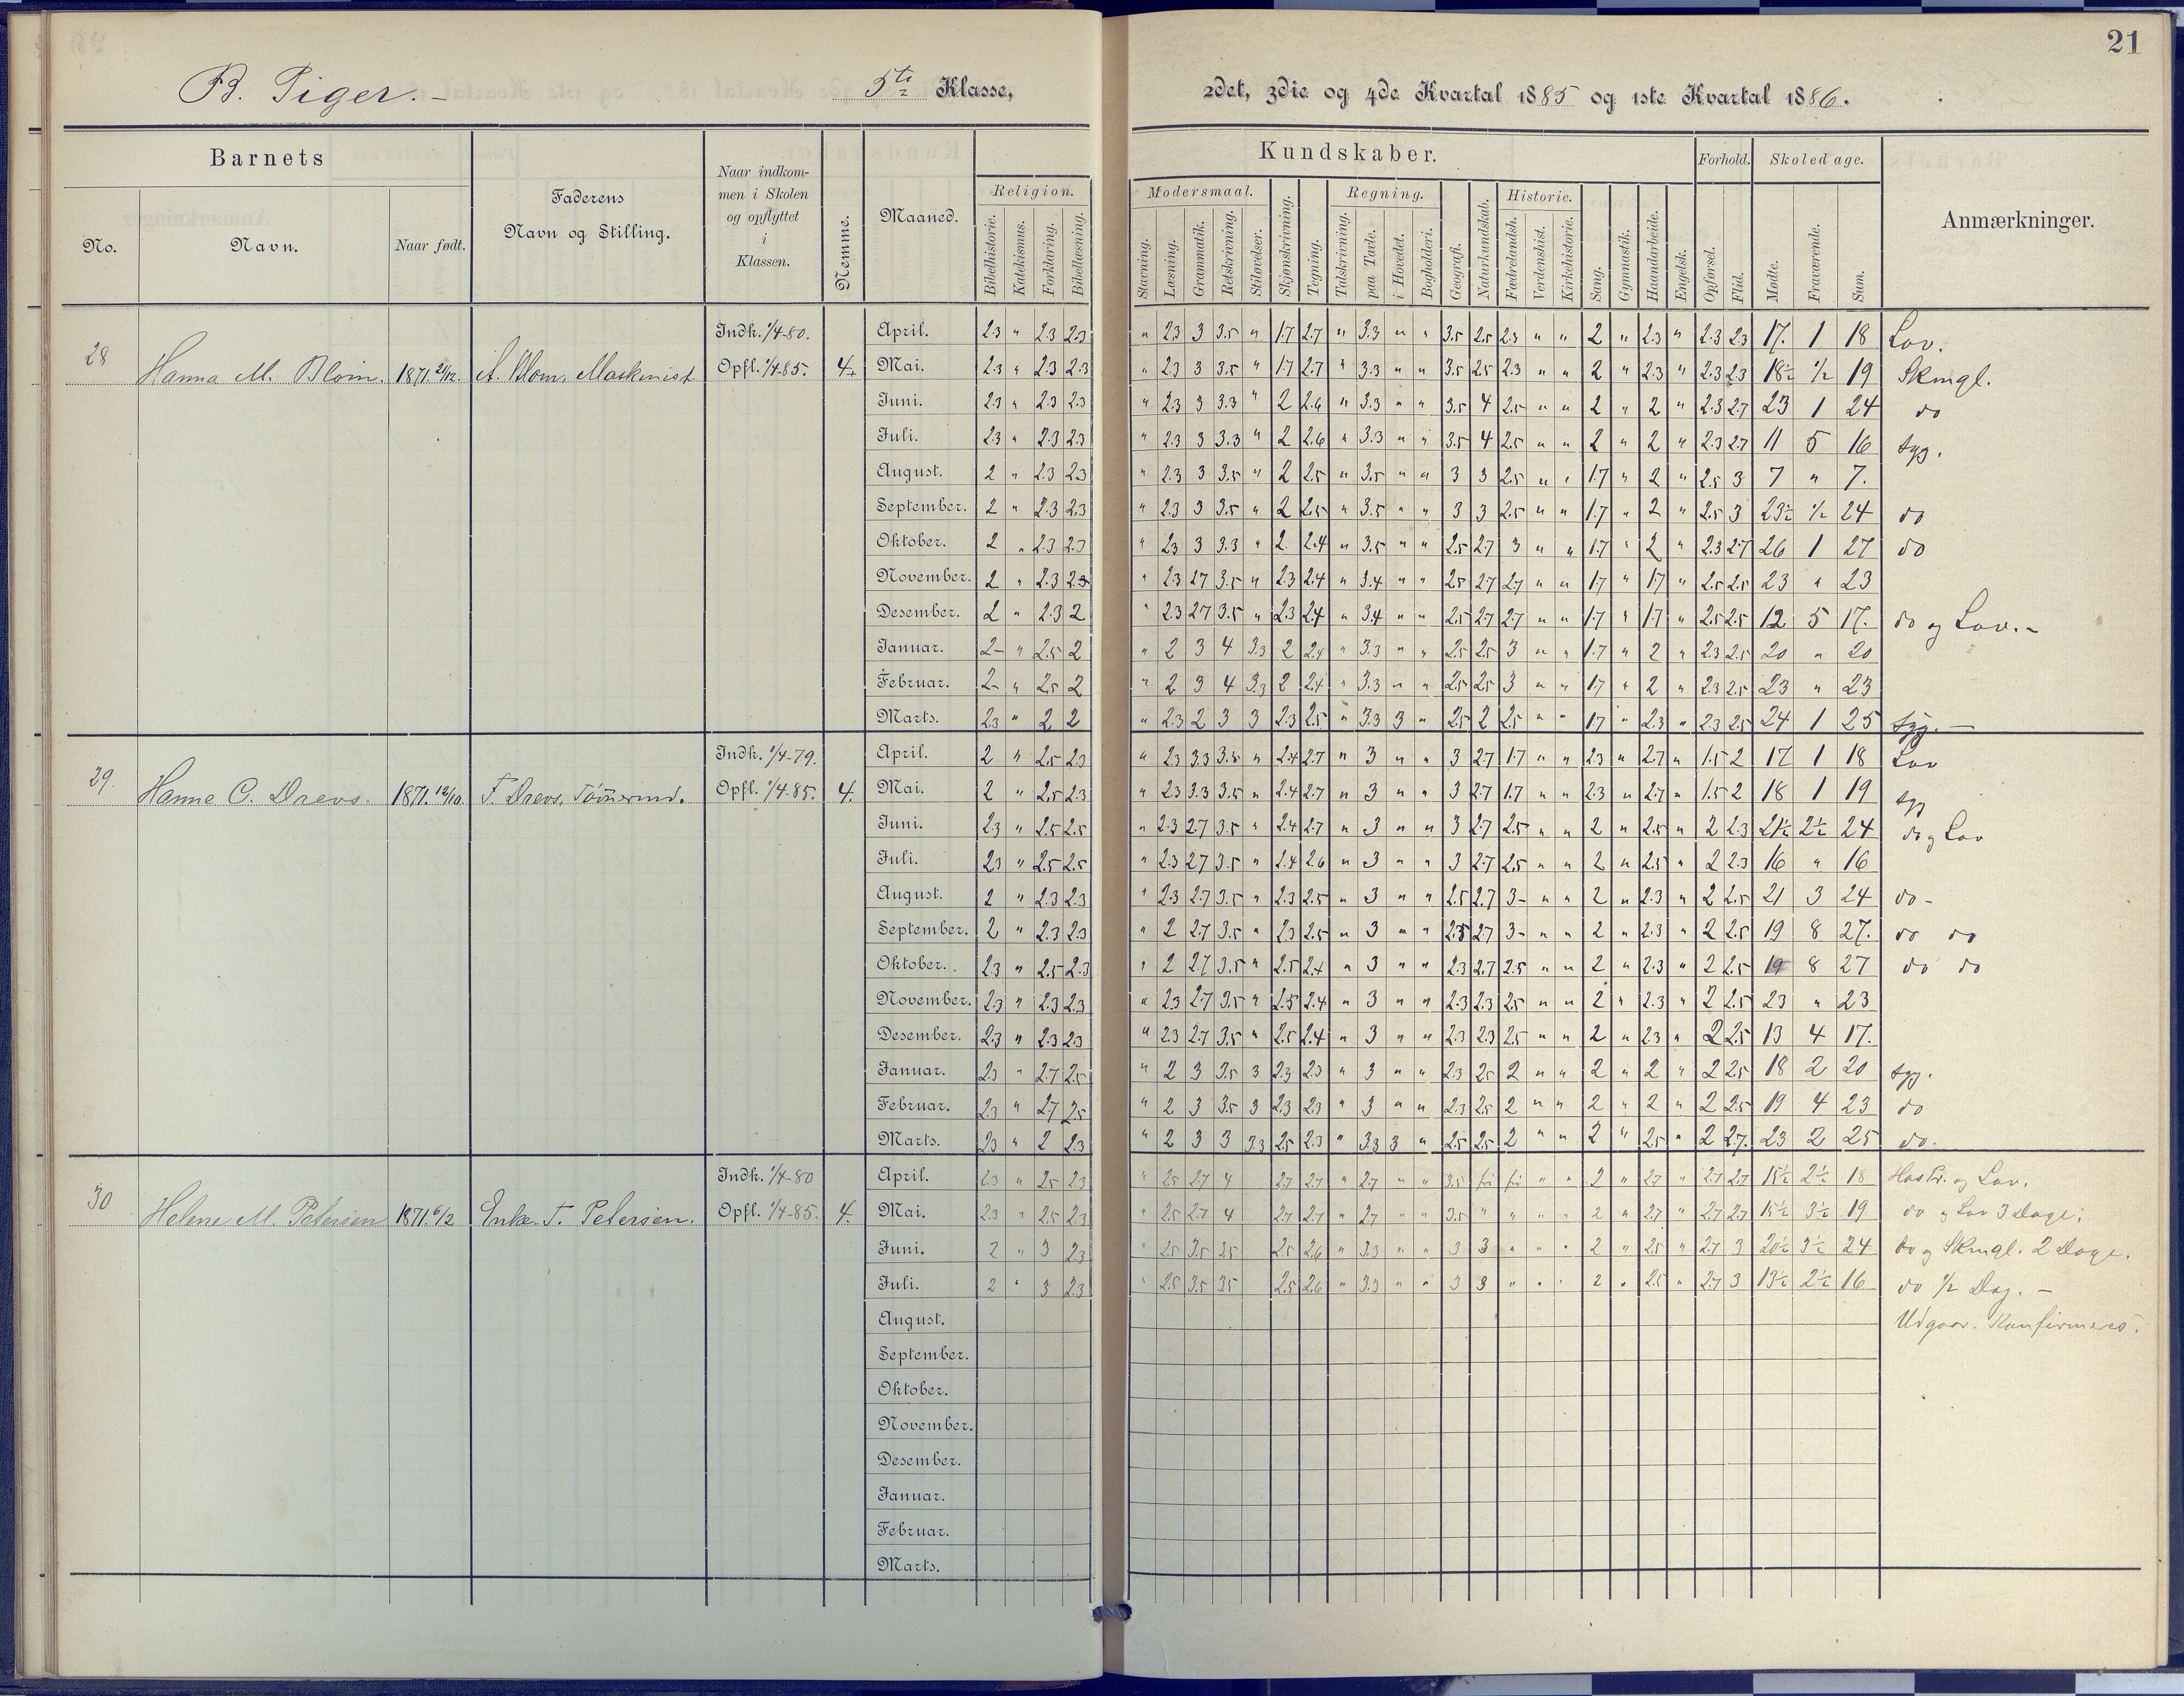 21
B. Piger. — 5te Klasse, 2det, 3die og 4de Kvartal 1885 og 1ste Kvartal 1886.
Barnets
Kundskaber.
Forhold.
Skoledage.
No.
Navn.
Naar født.
Faderens
Navn og Stilling.
Naar indkom-
men i Skolen
og opflyttet
i
Klassen.
Nemme.
Maaned.
Religion.
Bibelhistorie.
Katekismus.
Forklaring.
Bibellæsning.
Modersmaal.
Stavning.
Læsning.
Grammatik.
Retskrivning.
Stiløvelser.
Skjønskrivning.
Tegning.
Regning.
Talskrivning.
paa Tavle.
i Hovedet.
Bogholderi.
Geografi.
Naturkundskab.
Historie.
Fædrelandsh.
Verdenshist.
Kirkehistorie.
Sang.
Gymnastik.
Haandarbeide.
Engelsk.
Opførsel.
Flid.
Mødte.
Fraværende.
Sum.
Anmærkninger.
28 Hanna M. Blom. 1871. 21/12. A. Blom, Maskinist
Indk. 1/4-80.
Opfl. 1/4 85. 4.
April. 2.3 " 2.3 2.3 " 2.3 3 3.5 " 1.7 2.7 " 3.3 " " 3.5 2.5 2.3 " " 2 " 2.3 " 2.3 2.3 17. 1 18 Lov.
Mai. 2.3 " 2.3 2.3 " 2.3 3 3.5 " 1.7 2.7 " 3.3 " " 3.5 2.5 2.3 " " 2 " 2.3 " 2.3 2.3 18½ ½ 19 Skmgl.
Juni. 2.3 " 2.3 2.3 " 2.3 3 3.3 " 2 2.6 " 3.3 " " 3.5 4 2.5 " " 2 " 2 " 2.3 2.7 23 1 24 do
Juli. 2.3 " 2.3 2.3 " 2.3 3 3.3 " 2 2.6 " 3.3 " " 3.5 4 2.5 " " 2 " 2 " 2.3 2.7 11 5 16 syg.
August. 2 " 2.3 2.3 " 2.3 3 3.5 " 2 2.5 " 3.5 " " 3 3 2.5 " " 1.7 " 2 " 2.5 3 7 " 7.
September. 2 " 2.3 2.3 " 2.3 3 3.5 " 2 2.5 " 3.5 " " 3 3 2.5 " " 1.7 " 2 " 2.5 3 23½ ½ 24 do
Oktober. 2 " 2.3 2.3 " 2.3 3 3.3 " 2 2.4 " 3.5 " " 2.5 2.7 3 " " 1.7 " 2 " 2.3 2.7 26 1 27 do
November. 2 " 2.3 2.3 " 2.3 2.7 3.5 " 2.3 2.4 " 3.4 " " 2.5 2.7 2.7 " " 1.7 " 1.7 " 2.5 2.5 23 " 23
Desember. 2 " 2.3 2 " 2.3 2.7 3.5 " 2.3 2.4 " 3.4 " " 2.5 2.7 2.7 " " 1.7 " 1.7 " 2.5 2.5 12 5 17. do og Lov. -
Januar. 2- " 2.5 2 " 2 3 4 3.3 2 2.4 " 3.3 " " 2.5 2.5 3 " " 1.7 " 2 " 2.3 2.5 20 " 20
Februar. 2- " 2.5 2 " 2 3 4 3.3 2 2.4 " 3.3 " " 2.5 2.5 3 " " 1.7 " 2 " 2.3 2.5 23 " 23
Marts. 2.3 " 2 2 " 2.3 2 3 3 2.3 2.5 " 3.3 3 " 2.5 2 2.5 " " 1.7 " 2.3 " 2.3 2.5 24 1 25 syg. —
29. Hanne C. Drevs. 1871. 12/10. F. Drevs, Tømmermd.
Indk. 1/4-79.
Opfl. 1/4-85. 4.
April. 2 " 2.5 2.3 " 2.3 3.3 3.5 " 2.4 2.7 " 3 " " 3 2.7 1.7 " " 2.3 " 2.7 " 1.5 2 17 1 18 Lov
Mai. 2 " 2.5 2.3 " 2.3 3.3 3.5 " 2.4 2.7 " 3 " " 3 2.7 1.7 " " 2.3 " 2.7 " 1.5 2 18 1 19 syg
Juni. 2.3 " 2.5 2.5 " 2.3 2.7 3.5 " 2.4 2.7 " 3 " " 3 2.7 2.5 " " 2 " 2.5 " 2 2.3 21½ 2½ 24 do og Lov
Juli. 2.3 " 2.5 2.5 " 2.3 2.7 3.5 " 2.4 2.6 " 3 " " 3 2.7 2.5 " " 2 " 2.5 " 2 2.3 16 " 16
August. 2 " 2.3 2.3 " 2.3 2.7 3.5 " 2.3 2.5 " 3 " " 2.5 2.7 3- " " 2 " 2.3 " 2 2.5 21 3 24 do -
September. 2 " 2.3 2.3 " 2 2.7 3.5 " 2.3 2.5 " 3 " " 2.5 2.7 3- " " 2 " 2.3 " 2 2.5 19 8 27. do do
Oktober. 2.3 " 2.5 2.3 " 2 2.7 3.5 " 2.5 2.4 " 3 " " 2.3 2.7 2.5 " " 2 " 2.3 " 2 2.5 19 8 27 do do
November. 2.3 " 2.3 2.3 " 2.3 2.7 3.5 " 2.5 2.4 " 3 " " 2.3 2.3 2.5 " " 2 " 2.3 " 2 2.5 23 " 23
Desember. 2.3 " 2.3 2.3 " 2.3 2.7 3.5 " 2.5 2.4 " 3 " " 2.3 2.3 2.5 " " 2 " 2.3 " 2 2.5 13 4 17.
Januar. 2.3 " 2.7 2.5 " 2 3 3.5 3 2.3 2.3 " 3 " " 2.3 2.5 2 " " 2 " 2 " 2 2.5 18 2 20 syg.
Februar. 2.3 " 2.7 2.5 " 2 3 3.5 3 2.3 2.3 " 3 " " 2.3 2.5 2 " " 2 " 2 " 2 2.5 19 4 23 do
Marts. 2.3 " 2 2.3 " 2 3 3 3.3 2.5 2.3 " 3.3 3 " 2.5 2.5 2 " " 2 " 2.5 " 2 2.7. 23 2 25 do.
30 Helene M. Petersen 1871. 6/2 Enke T. Petersen.
Indk. 1/4-80
Opfl. 1/4-85. 4.
April. 2.3 " 2.5 2.3 " 2.5 2.7 4 2.7 2.7 " 2.7 " " 3.5 fri fri " " 2 " 2.7 " 2.7 2.7 15½ 2½ 18 Hos Pr. og Lov.
Mai. 2.3 " 2.5 2.3 " 2.5 2.7 4 2.7 2.7 " 2.7 " " 3.5 " " " " 2 " 2.7 " 2.7 2.7 15½ 3½ 19 do og Lov 3 Dage;
Juni. 2 " 3 2.3 " 2.5 3.5 3.5 2.5 2.6 " 3.3 " " 3 3 " " " 2 " 2.5 " 2.7 3 20½ 3½ 24 do og Skmgl. 2 Dage.
Juli. 2 " 3 2.3 " 2.5 3.5 3.5 2.5 2.6 " 3.3 " " 3 3 " " " 2 " 2.5 " 2.7 3 13½ 2½ 16 do ½ Dag. —
August. Udgaar. Konfirmeres.
September.
Oktober.
November.
Desember.
Januar.
Februar.
Marts.